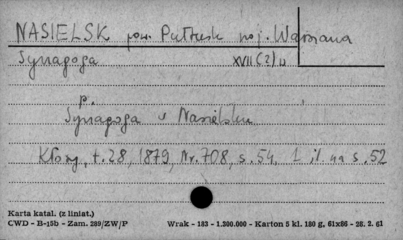 NASIELSK pow. Pułtusk woj. Warszawa
Synagoga XVII (?) w
p.
Synagoga w Nasielsku
Kłosy, t. 28, 1879, Nr. 708, s. 54. 1 il. na s. 52
Karta katal. (z liniat.)
CWD - B-15b - Zam. 289/ZW/P Wrak - 183 - 1.300.000 - Karton 5 kl. 180 g, 61x86 - 28. 2. 61